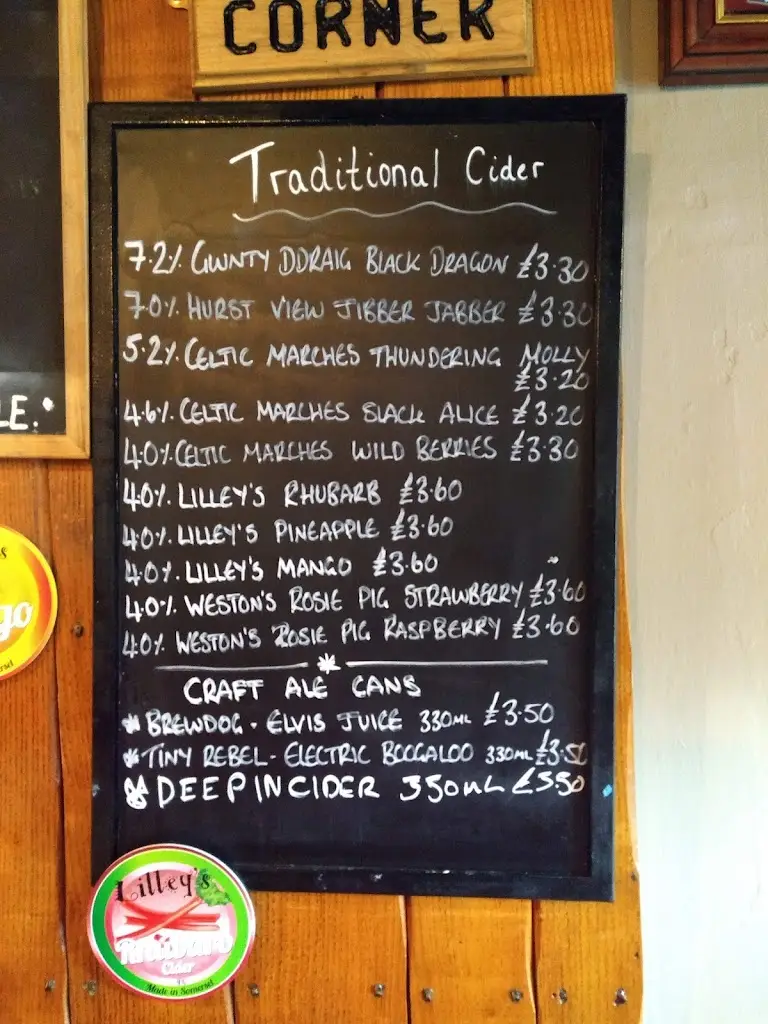 CORNER
Traditional Cider
7.2% GWNTY DDRAIG BLACK DRAGON £3.30
7.0% HURST VIEW JIBBER JABBER £3.30
5.2% CELTIC MARCHES THUNDERING MOLLY
£3.20
4.6% CELTIC MARCHES SLACK ALICE £3.20
4.0% CELTIC MARCHES WILD BERRIES £3.30
4.0% LILLEY'S RHUBARB £3.60
4.0% LILLEY'S PINEAPPLE £3.60
4.0% LILLEY'S MANGO £3.60
4.0% WESTON'S ROSIE PIG STRAWBERRY £3.60
4.0% WESTON'S ROSIE PIG RASPBERRY £3.60
CRAFT ALE CANS
* BREWDOG - ELVIS JUICE 330ML £3.50
* TINY REBEL - ELECTRIC BOOGALOO 330ML £3.50
* DEEP IN CIDER 350ML £5.50
LE.
go
Lilley's
Rhubarb
Cider
Made in Somerset